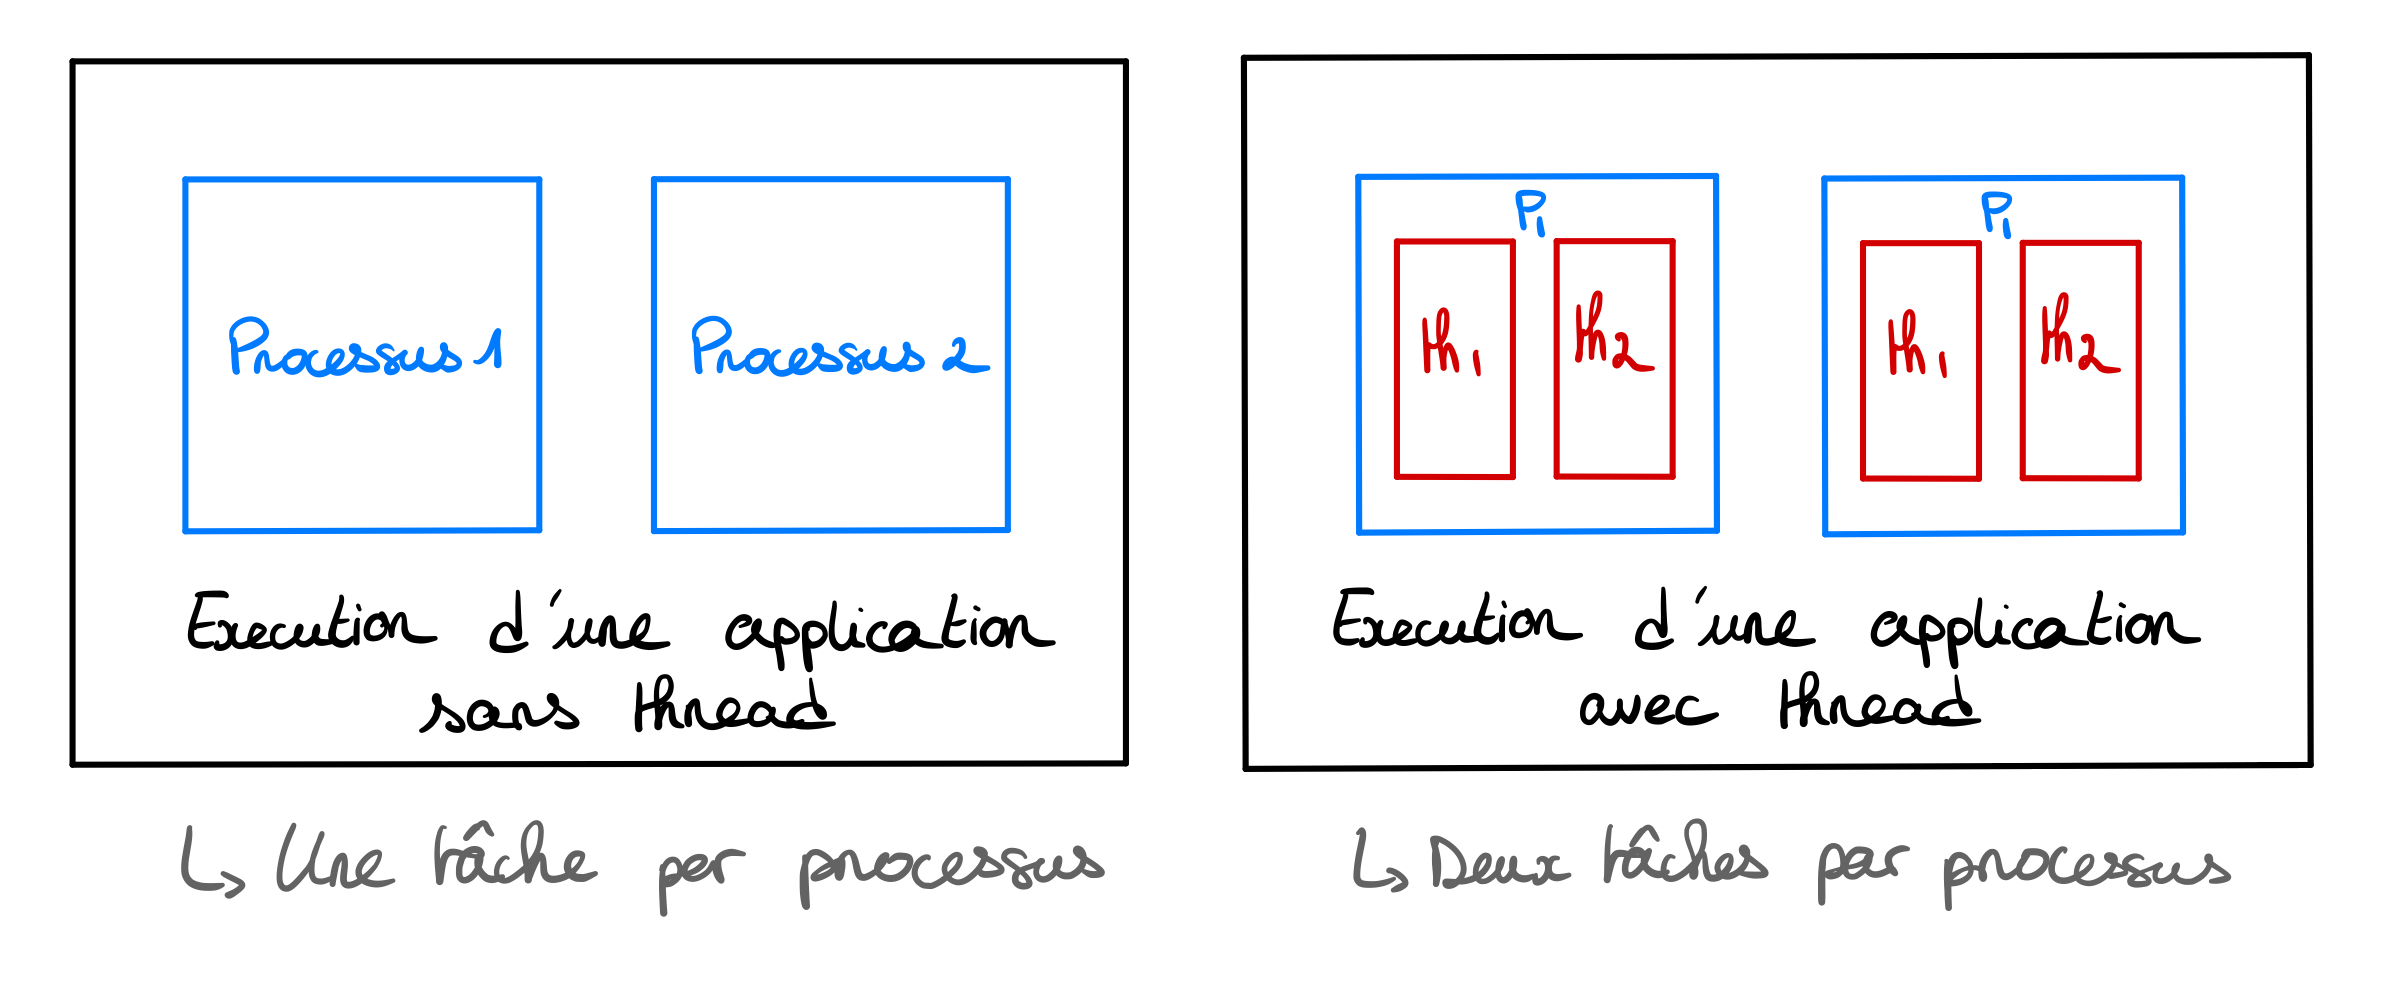 Processus 1
Processus 2
Execution d'une application
sans thread
↳ Une tâche par processus
P1
th1
th2
P1
th1
th2
Execution d'une application
avec thread
↳ Deux tâches par processus